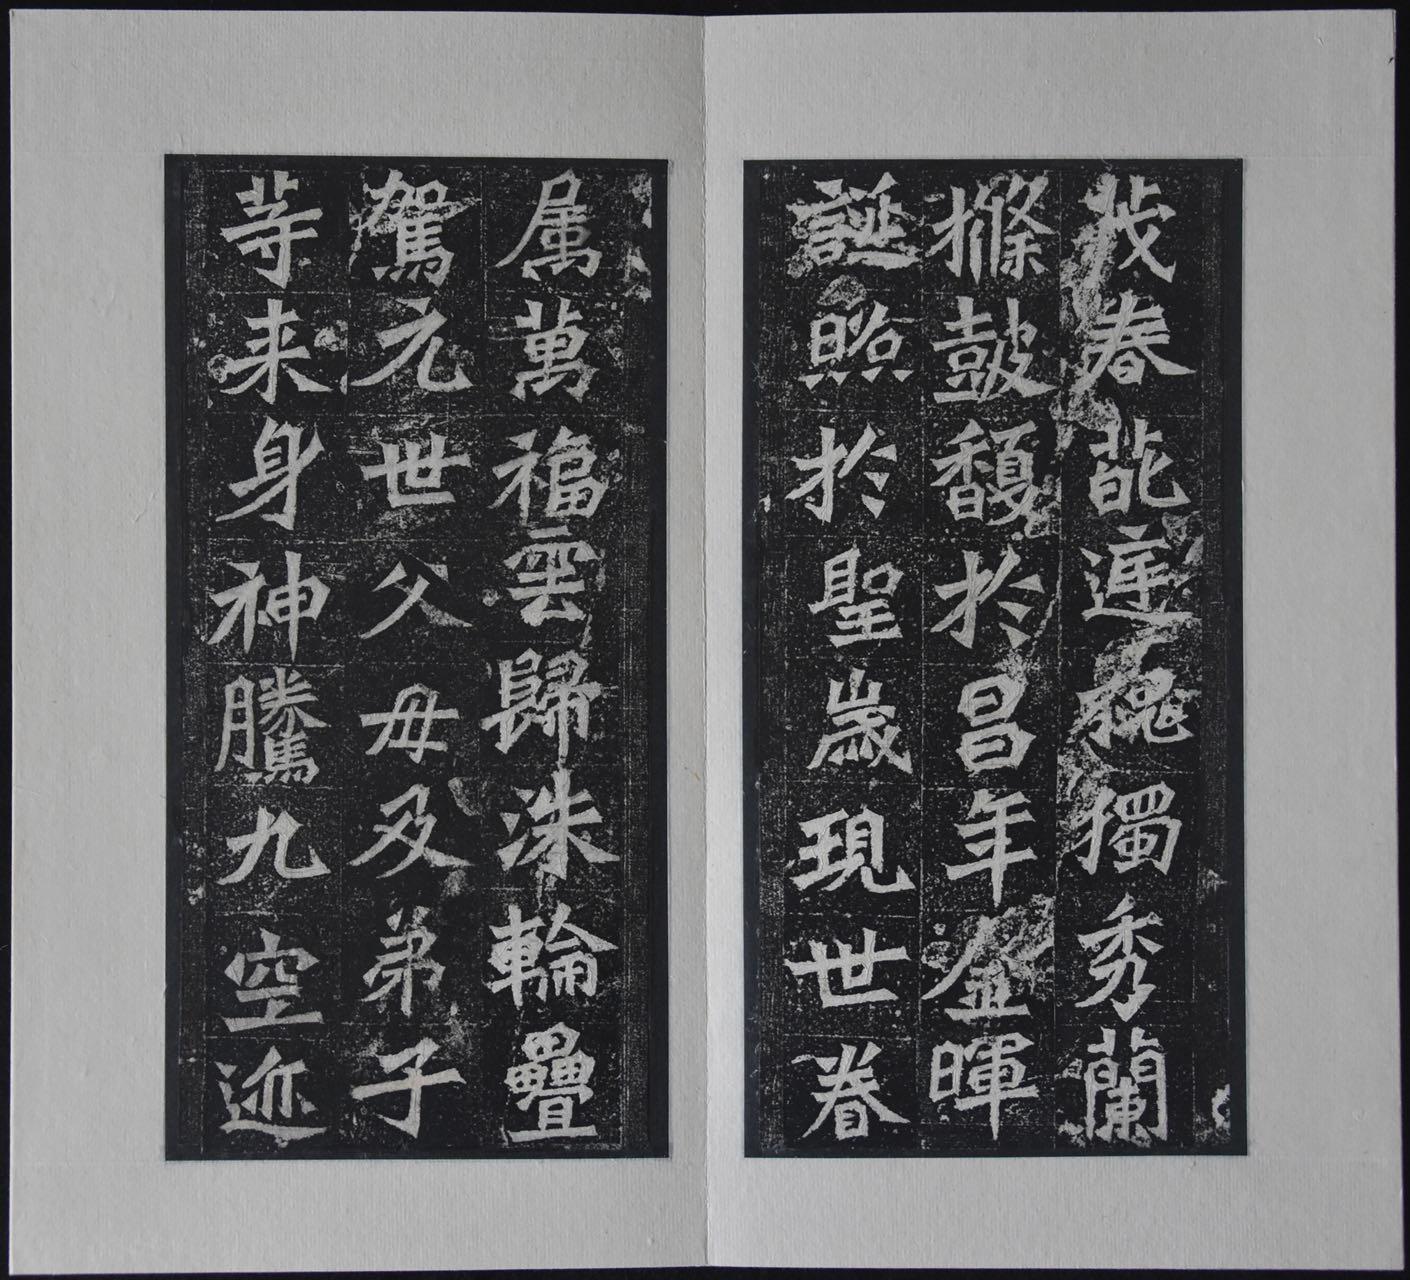 茂春葩庭槐獨秀蘭
條鼓馥於昌年金暉
誕照於聖歲現世眷
属萬福雲歸洙輪疊
駕元世父母及弟子
等来身神騰九空迹